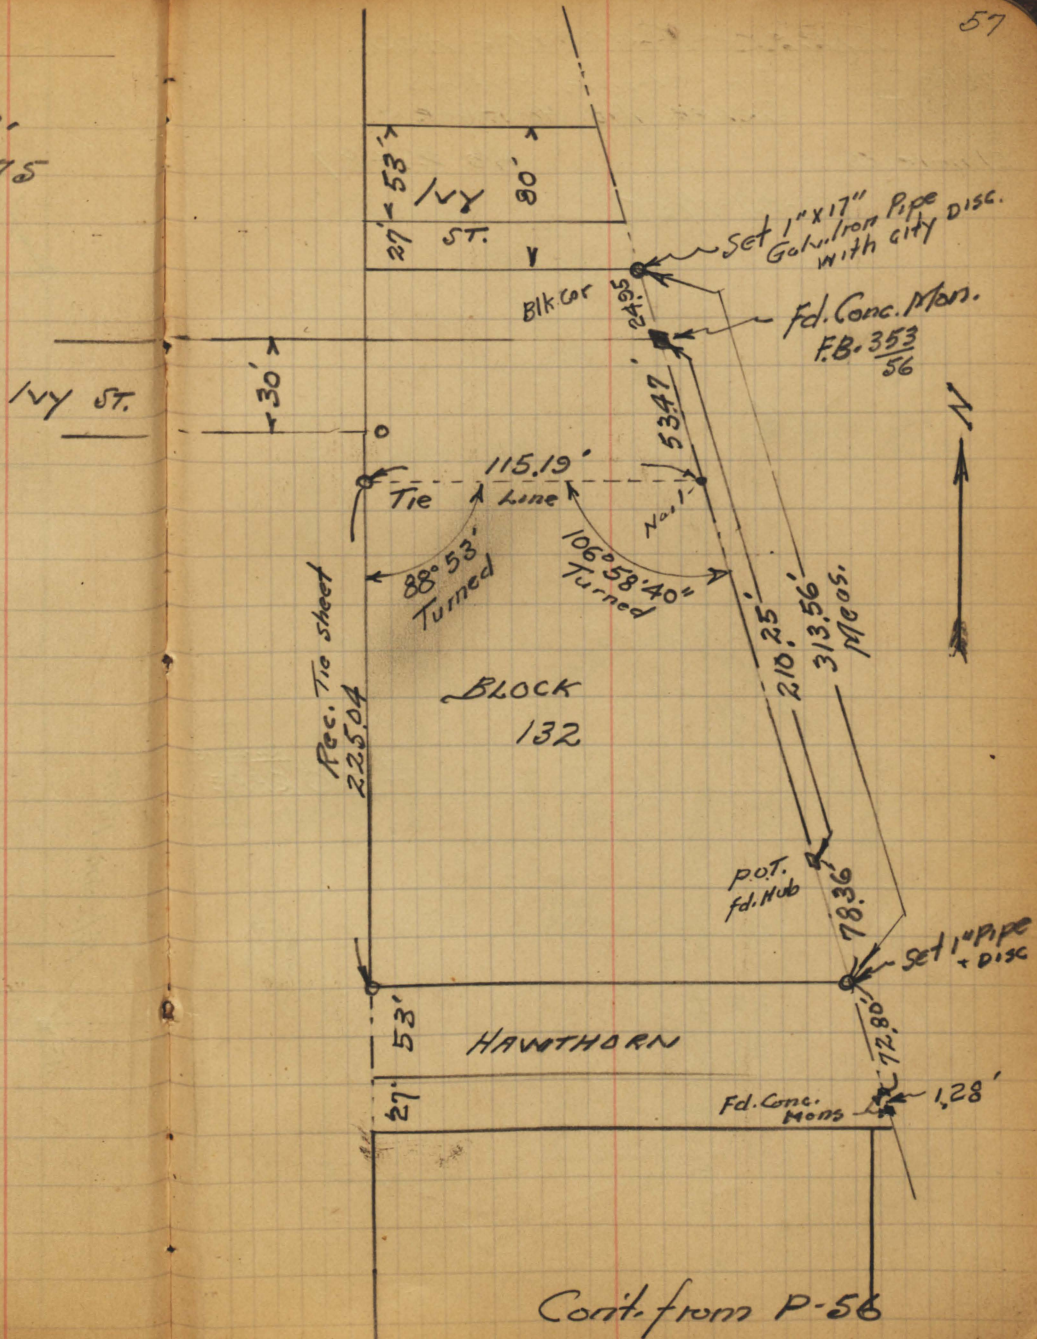 57
75
53'
27'
IVY
ST.
80'
Set 1" x 17"
Galv. Iron Pipe
with city Disc.
Blk Cor
24.95
Fd. Conc. Mon.
F.B. 353
56
IVY ST.
30'
53.47'
N
115.19'
Tie Line
Nail
88° 53'
Turned
106° 58' 40"
Turned
Rec. Tie sheet
225.04
210.25'
313.56'
Meas.
BLOCK
132
P.O.T.
fd. Hub
78.36'
Set 1" Pipe
+ Disc
53'
HAWTHORN
72.80'
27'
Fd. Conc.
Mons
1.28'
Cont. from P-56